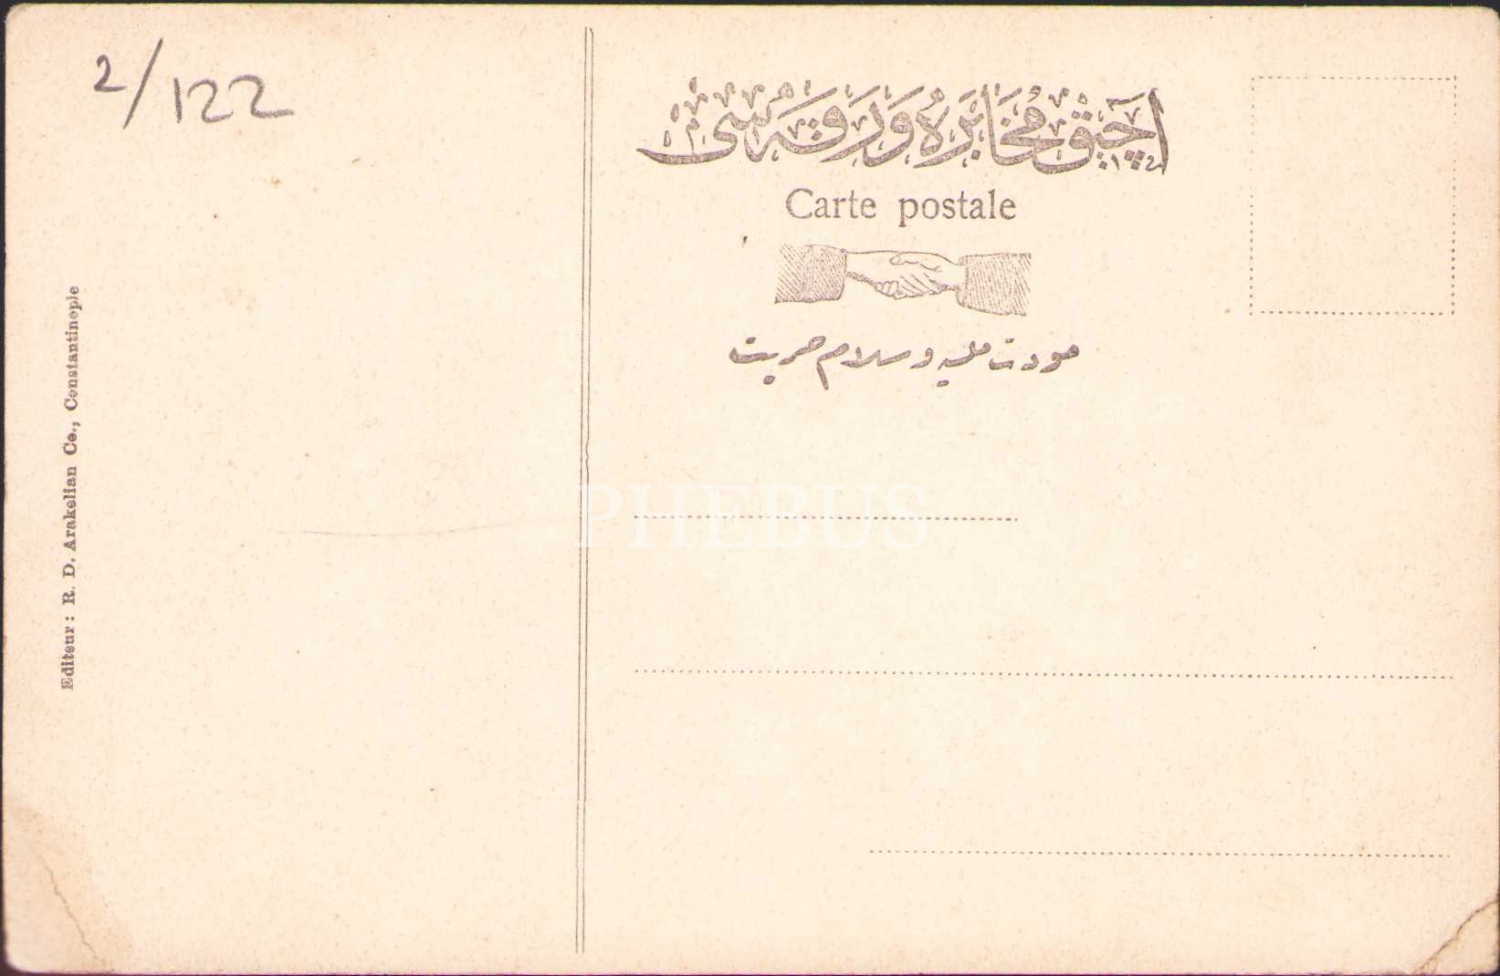 2/122
Editeur : R. D. Arakelian Co., Constantinople
آچيق مخابره ورقه سى
Carte postale
مودت مليه و سلام حريت
PHEBUS